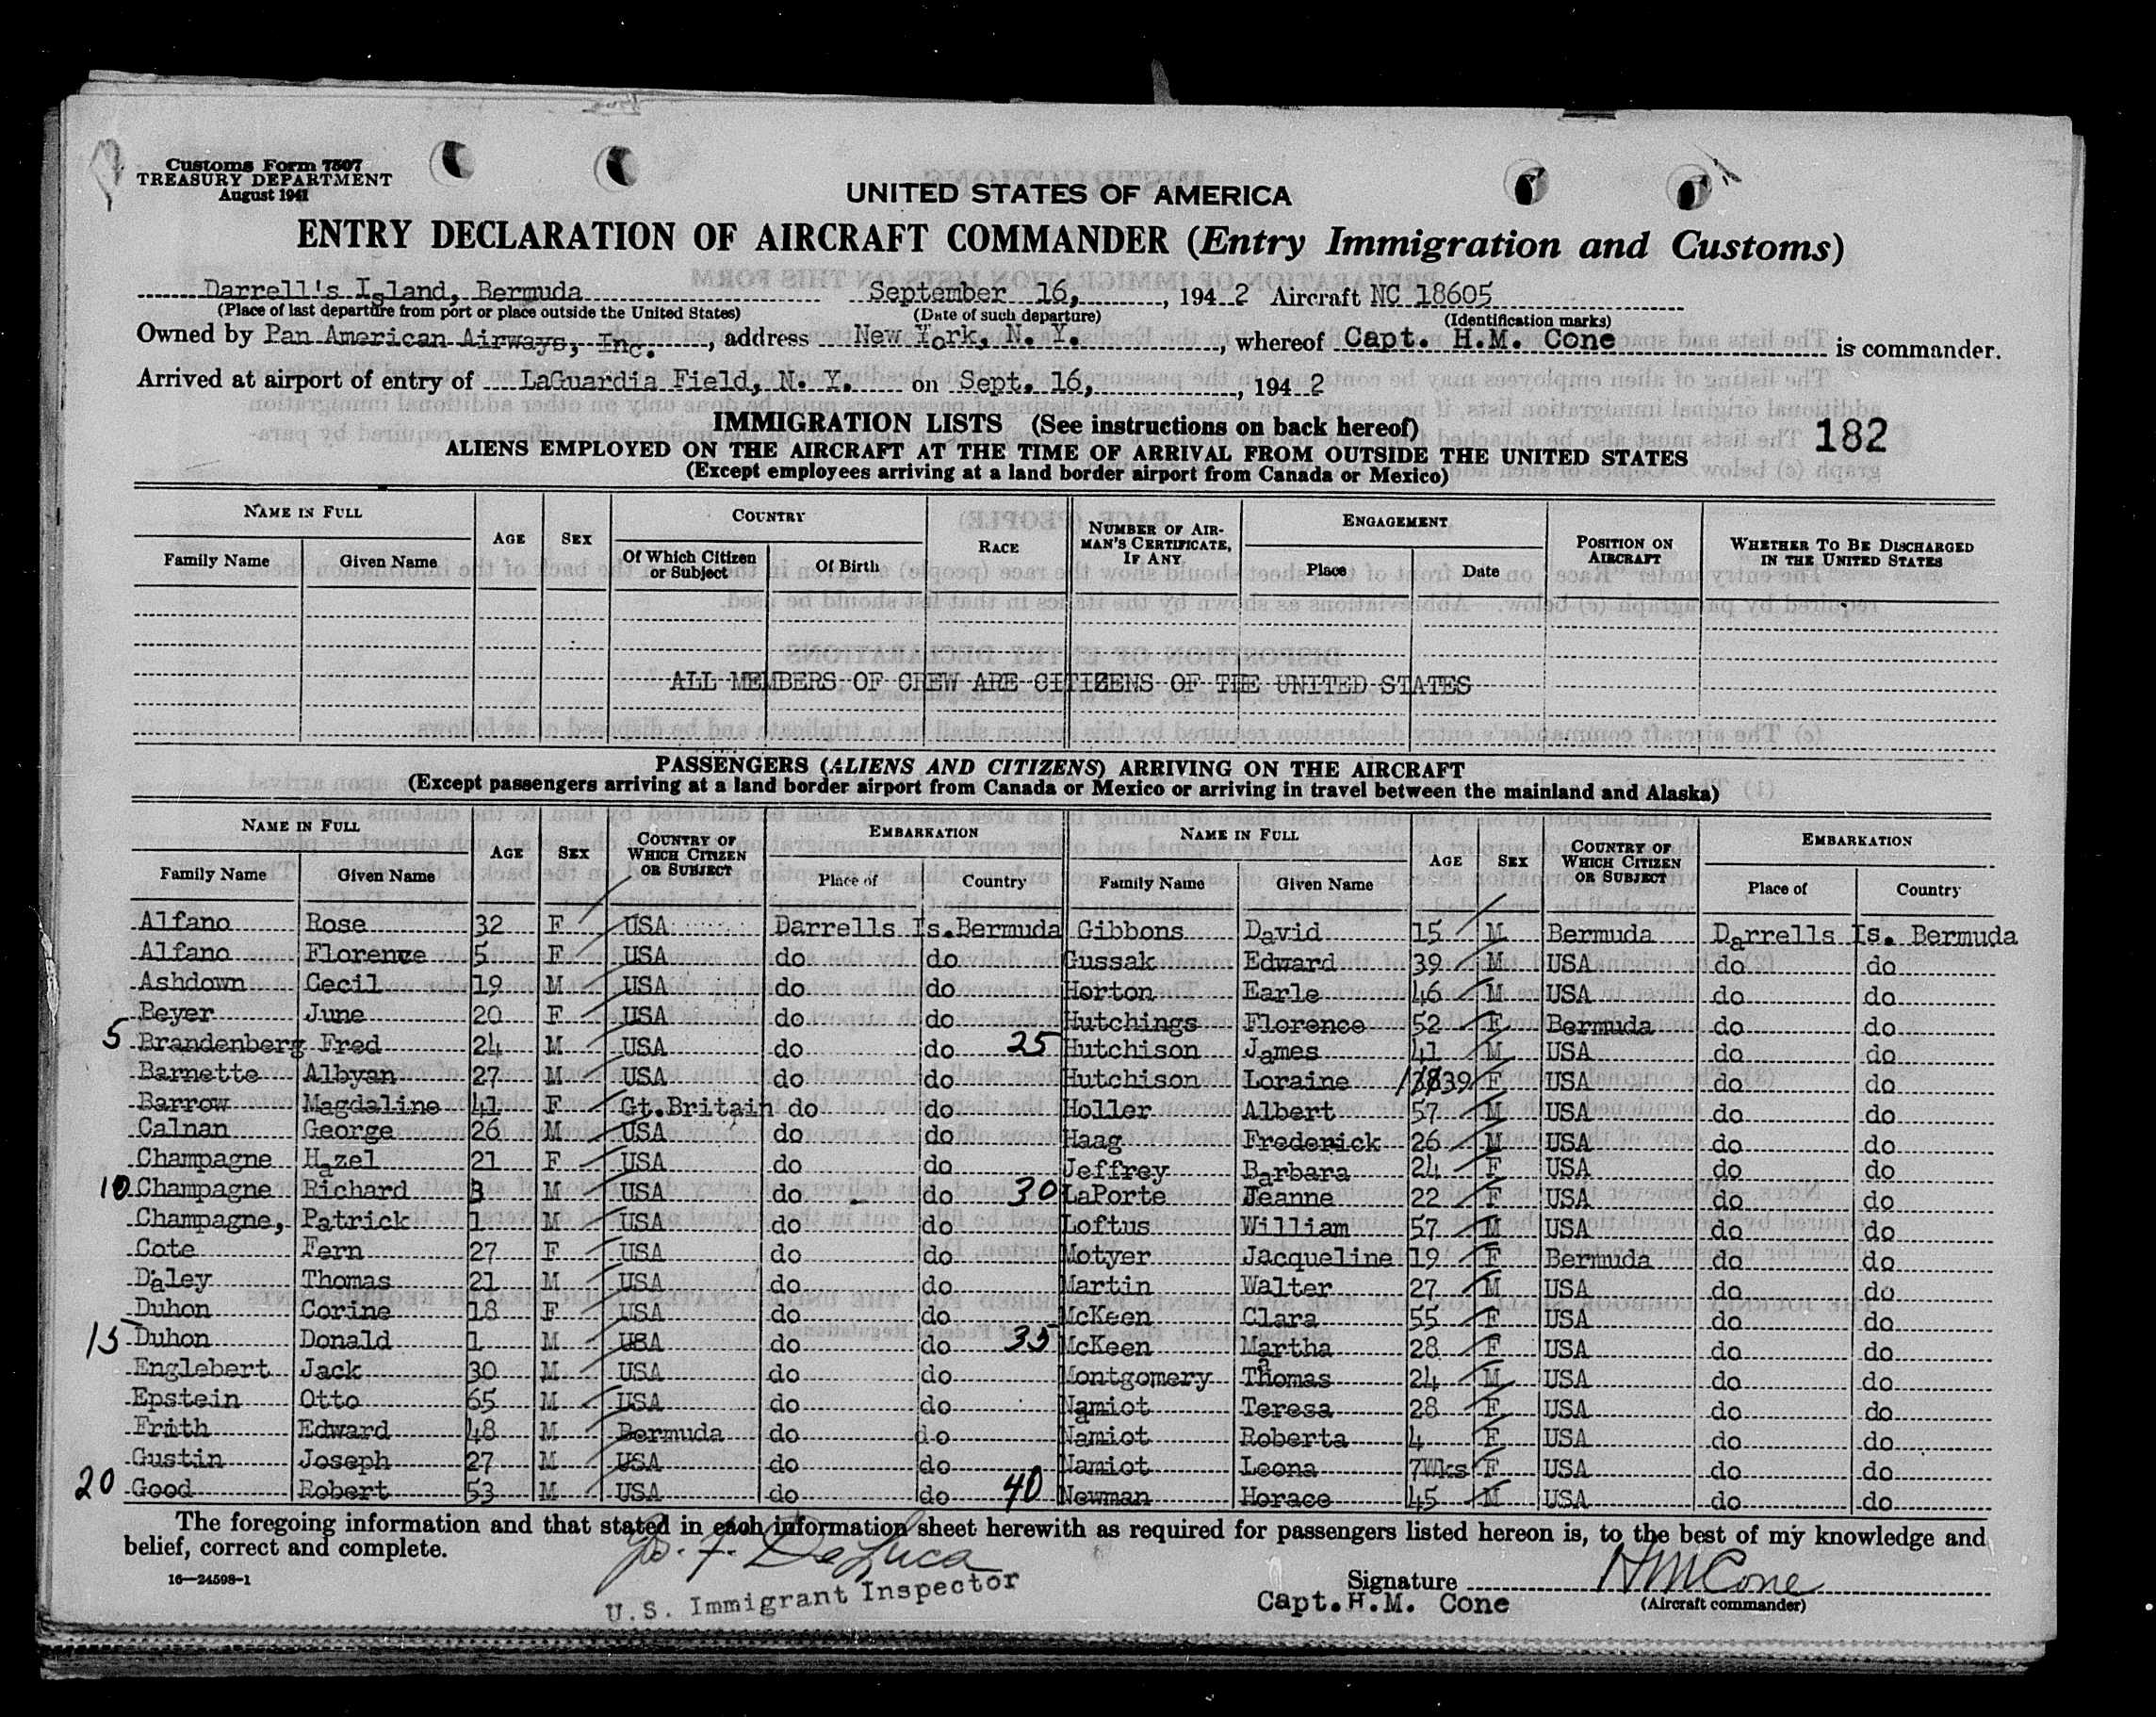 Customs Form 7507
TREASURY DEPARTMENT
August 1941
UNITED STATES OF AMERICA
ENTRY DECLARATION OF AIRCRAFT COMMANDER (Entry Immigration and Customs)
Darrell's Island, Bermuda September 16, , 1942 Aircraft NC 18605
(Place of last departure from port or place outside the United States) (Date of such departure) (Identification marks)
Owned by Pan American Airways, Inc. , address New York, N. Y. , whereof Capt. H.M. Cone is commander.
Arrived at airport of entry of LaGuardia Field, N. Y. on Sept. 16, , 1942
IMMIGRATION LISTS (See instructions on back hereof) 182
ALIENS EMPLOYED ON THE AIRCRAFT AT THE TIME OF ARRIVAL FROM OUTSIDE THE UNITED STATES
(Except employees arriving at a land border airport from Canada or Mexico)
NAME IN FULL AGE SEX COUNTRY RACE NUMBER OF AIRMAN'S CERTIFICATE, IF ANY ENGAGEMENT POSITION ON AIRCRAFT WHETHER TO BE DISCHARGED IN THE UNITED STATES
Family Name Given Name Of Which Citizen or Subject Of Birth Place Date
ALL MEMBERS OF CREW ARE CITIZENS OF THE UNITED STATES
PASSENGERS (ALIENS AND CITIZENS) ARRIVING ON THE AIRCRAFT
(Except passengers arriving at a land border airport from Canada or Mexico or arriving in travel between the mainland and Alaska)
NAME IN FULL AGE SEX COUNTRY OF WHICH CITIZEN OR SUBJECT EMBARKATION NAME IN FULL AGE SEX COUNTRY OF WHICH CITIZEN OR SUBJECT EMBARKATION
Family Name Given Name Place of Country Family Name Given Name Place of Country
Alfano Rose 32 F USA Darrells Is. Bermuda Gibbons David 15 M Bermuda Darrells Is. Bermuda
Alfano Florence 5 F USA do do Gussak Edward 39 M USA do do
Ashdown Cecil 19 M USA do do Horton Earle 46 M USA do do
Beyer June 20 F USA do do Hutchings Florence 52 F Bermuda do do
5 Brandenberg Fred 24 M USA do do 25 Hutchison James 41 M USA do do
Barnette Albyan 27 M USA do do Hutchison Loraine 39 F USA do do
Barrow Magdaline 41 F Gt.Britain do do Holler Albert 57 M USA do do
Calnan George 26 M USA do do Haag Frederick 26 M USA do do
Champagne Hazel 21 F USA do do Jeffrey Barbara 24 F USA do do
10 Champagne Richard 3 M USA do do 30 LaPorte Jeanne 22 F USA do do
Champagne, Patrick 1 M USA do do Loftus William 57 M USA do do
Cote Fern 27 F USA do do Motyer Jacqueline 19 F Bermuda do do
Daley Thomas 21 M USA do do Martin Walter 27 M USA do do
Duhon Corine 18 F USA do do McKeen Clara 55 F USA do do
15 Duhon Donald 1 M USA do do 35 McKeen Martha 28 F USA do do
Englebert Jack 30 M USA do do Montgomery Thomas 24 M USA do do
Epstein Otto 65 M USA do do Namiot Teresa 28 F USA do do
Frith Edward 48 M Bermuda do do Namiot Roberta 4 F USA do do
Gustin Joseph 27 M USA do do Namiot Leona 7Wks F USA do do
20 Good Robert 53 M USA do do 40 Newman Horace 45 M USA do do
The foregoing information and that stated in each information sheet herewith as required for passengers listed hereon is, to the best of my knowledge and
belief, correct and complete.
16—24598-1
De Luca
U.S. Immigrant Inspector
Signature HMCone
Capt. H.M. Cone (Aircraft commander)